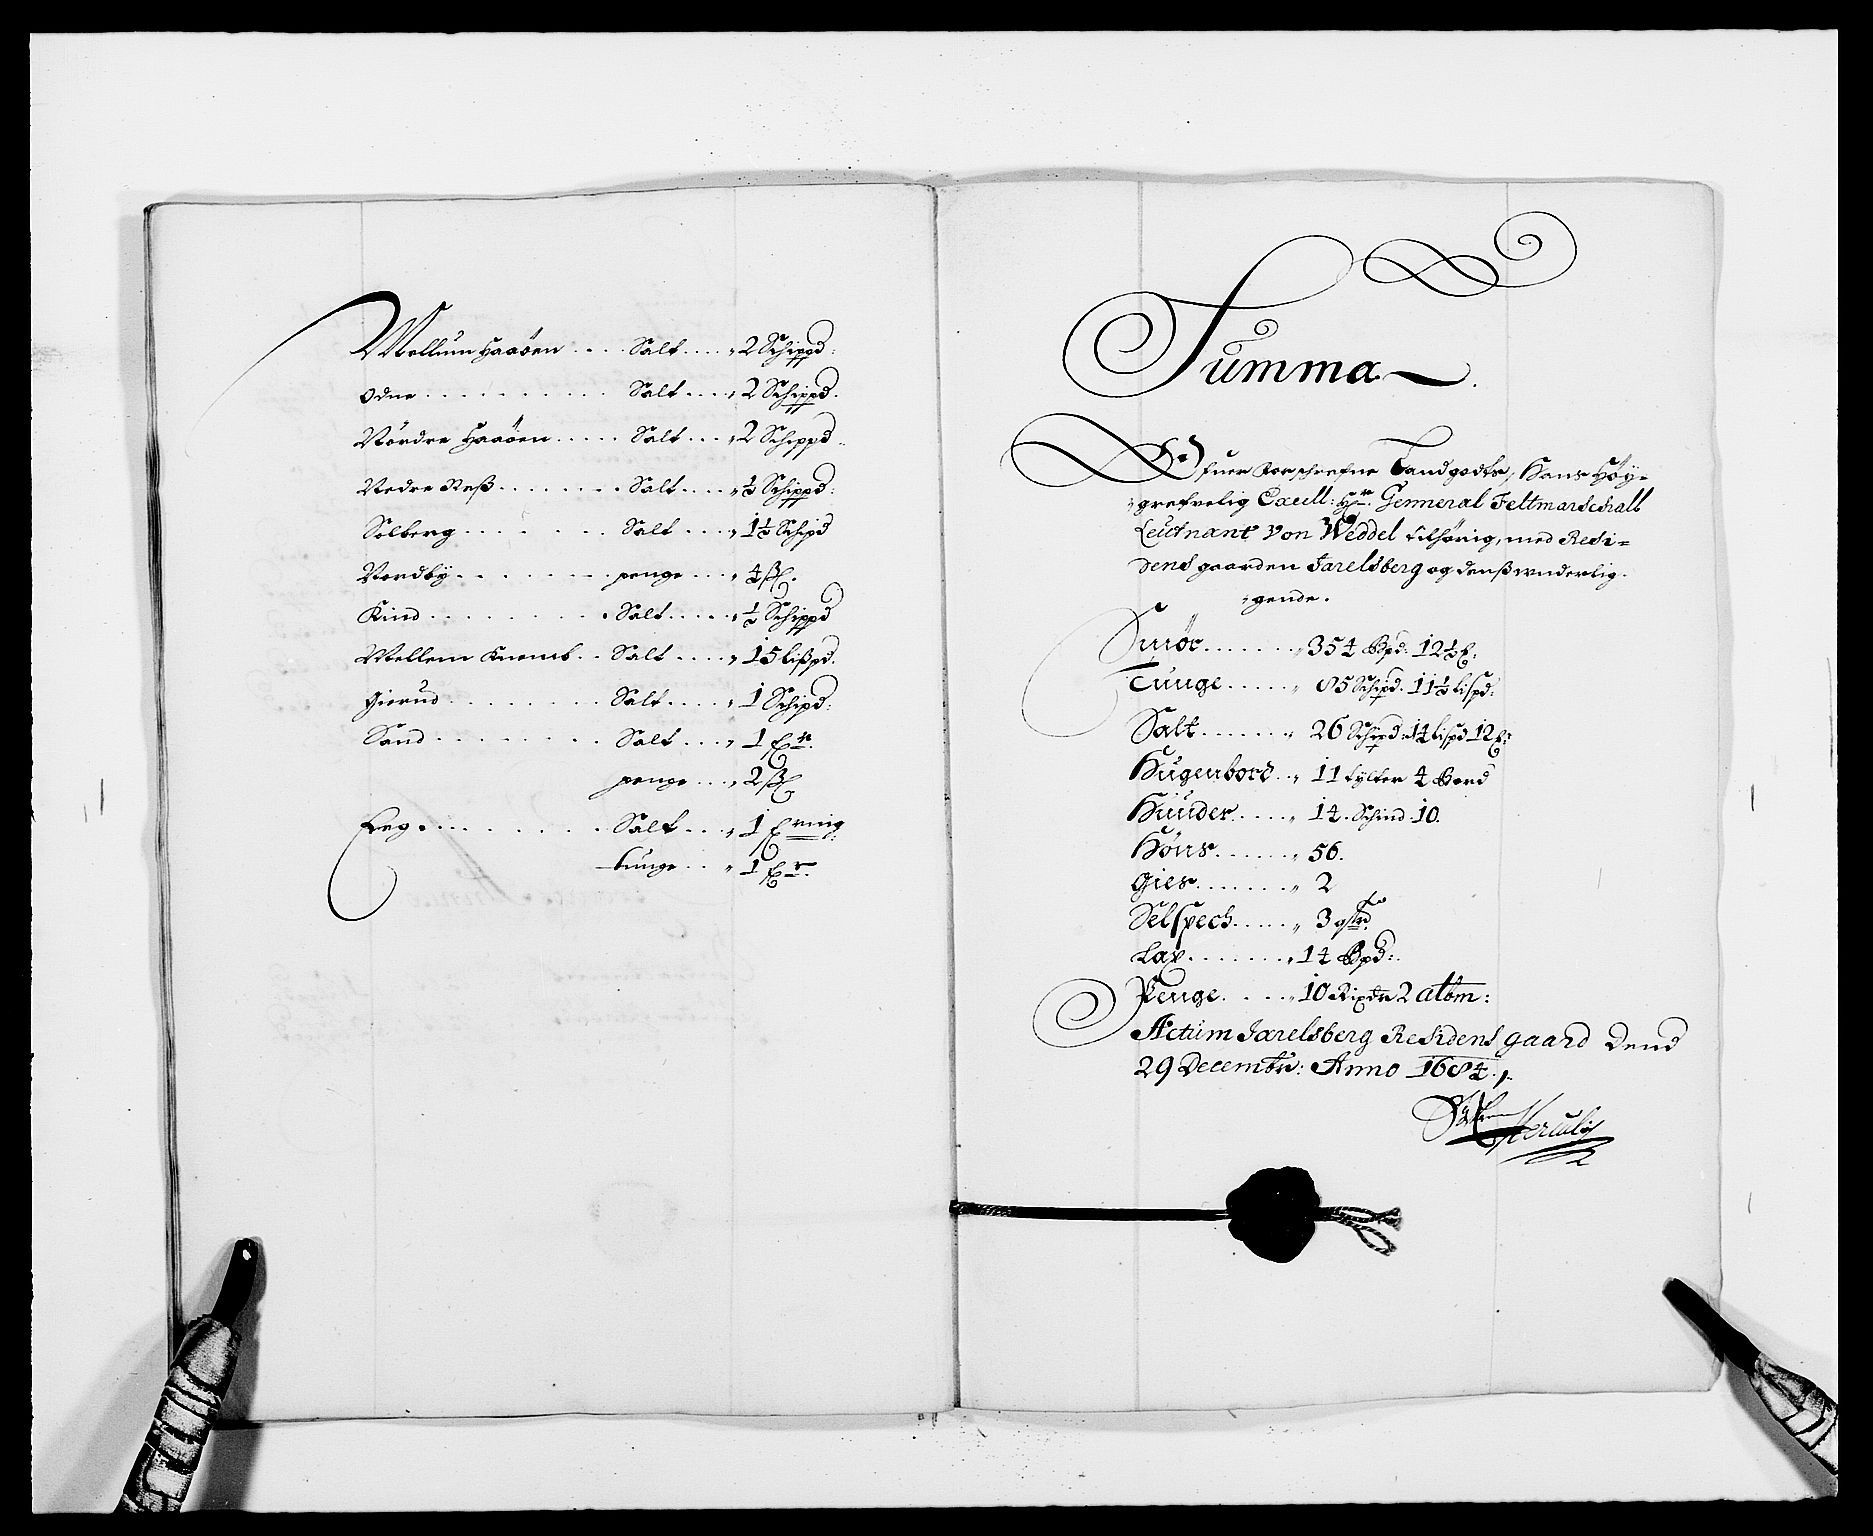 Mellum Haaöen .... Salt .... 2 Schippd:
Odne .......... Salt .... 2 Schippd.
Nördre Haaöen ..... Salt ... 2 Schippd
Nedre Røß ....... Salt .... ½ Schippd:
Solberg ....... Salt .... 1½ Schipd
Nordby ....... penge ... 4 ß
Kind ........ Salt ..... ½ Schippd
Mellem Knemb .. Salt .... 15 lißpd.
Gierud ........ Salt .... 1 Schipd:
Sand ........ Salt ...
penge ... 2 ß
Eeg ........ Salt ... 1
tunge ... 1
Summa
Ofuer forschrefne Landgodts, Hans Höy-
grefvelig Excell: Hr. Genneral Feltmarschall
Leutnant Von Weddel tilhörig, med Resi-
dens gaarden Jarelsberg og denß wnderlig-
gende.
Smör ....... 354 Bpd: 12½
Tunge ..... 85 Schipd. 11½ lispd:
Salt ...... 26 Schipd 14 lispd 12
Hugenbord .. 11 tylter 4 Bord
Huuder .... 14. Schind 10.
Höns ...... 56.
Gies ....... 2
Selspech ..... 3
Lax ....... 14 Bpd:
Penge .... 10 Rixdr 2 albm:
Actum Jarelsberg Residens gaard Dend
29 Decembr: Anno 1684.